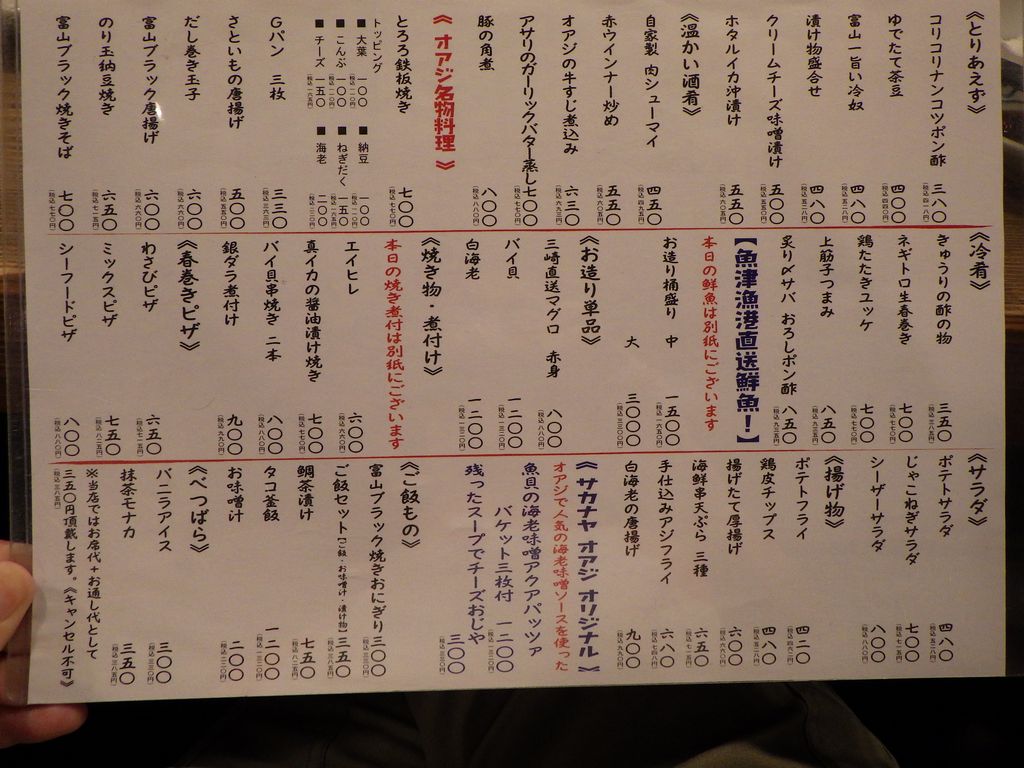 《とりあえず》
コリコリナンコツポン酢 三八〇 (税込 四一八円)
ゆでたて茶豆 四〇〇 (税込 四四〇円)
富山一旨い冷奴 四八〇 (税込 五二八円)
漬け物盛合せ 四八〇 (税込 五二八円)
クリームチーズ味噌漬け 五〇〇 (税込 五五〇円)
ホタルイカ沖漬け 五五〇 (税込 六〇五円)
《温かい酒肴》
自家製 肉シューマイ 四五〇 (税込 四九五円)
赤ウインナー炒め 五五〇 (税込 六〇五円)
オアジの牛すじ煮込み 六三〇 (税込 六九三円)
アサリのガーリックバター蒸し 七〇〇 (税込 七七〇円)
豚の角煮 八〇〇 (税込 八八〇円)
《オアジ名物料理》
とろろ鉄板焼き 七〇〇 (税込 七七〇円)
トッピング
■大葉 一〇〇 (税込 一一〇円) ■納豆 一〇〇 (税込 一一〇円)
■こんぶ 一〇〇 (税込 一一〇円) ■ねぎだく 一五〇 (税込 一六五円)
■チーズ 一五〇 (税込 一六五円) ■海老 二〇〇 (税込 二二〇円)
Gパン 三枚 三三〇 (税込 三六三円)
さといもの唐揚げ 五〇〇 (税込 五五〇円)
だし巻き玉子 六〇〇 (税込 六六〇円)
富山ブラック唐揚げ 六〇〇 (税込 六六〇円)
のり玉納豆焼き 六五〇 (税込 七一五円)
富山ブラック焼きそば 七〇〇 (税込 七七〇円)
《冷肴》
きゅうりの酢の物 三五〇 (税込 三八五円)
ネギトロ生春巻き 七〇〇 (税込 七七〇円)
鶏たたきユッケ 七〇〇 (税込 七七〇円)
上筋子つまみ 八五〇 (税込 九三五円)
炙り〆サバ おろしポン酢 八五〇 (税込 九三五円)
【魚津漁港直送鮮魚！】
本日の鮮魚は別紙にございます
お造り桶盛り 中 一五〇〇 (税込 一六五〇円)
大 三〇〇〇 (税込 三三〇〇円)
《お造り単品》
三崎直送マグロ 赤身 八〇〇 (税込 八八〇円)
バイ貝 一二〇〇 (税込 一三二〇円)
白海老 一二〇〇 (税込 一三二〇円)
《焼き物・煮付け》
本日の焼き煮付は別紙にございます
エイヒレ 六〇〇 (税込 六六〇円)
真イカの醤油漬け焼き 七〇〇 (税込 七七〇円)
バイ貝串焼き 二本 八〇〇 (税込 八八〇円)
銀ダラ煮付け 九〇〇 (税込 九九〇円)
《春巻きピザ》
わさびピザ 六五〇 (税込 七一五円)
ミックスピザ 七五〇 (税込 八二五円)
シーフードピザ 八〇〇 (税込 八八〇円)
《サラダ》
ポテトサラダ 四八〇 (税込 五二八円)
じゃこねぎサラダ 七〇〇
シーザーサラダ 八〇〇 (税込 八八〇円)
《揚げ物》
ポテトフライ 四二〇 (税込 四六二円)
鶏皮チップス 四八〇 (税込 五二八円)
揚げたて厚揚げ 六〇〇 (税込 六六〇円)
海鮮串天ぷら 三種 六五〇 (税込 七一五円)
手仕込みアジフライ 六八〇 (税込 七四八円)
白海老の唐揚げ 九〇〇 (税込 九九〇円)
《サカナヤ オアジ オリジナル》
オアジで人気の海老味噌ソースを使った
魚貝の海老味噌アクアパッツァ
バケット三枚付 一二〇〇 (税込 一三二〇円)
残ったスープでチーズおじや 三〇〇 (税込 三三〇円)
《ご飯もの》
富山ブラック焼きおにぎり 三〇〇 (税込 三三〇円)
ご飯セット【ご飯・お味噌汁・漬け物】 三五〇 (税込 三八五円)
鯛茶漬け 七五〇 (税込 八二五円)
タコ釜飯 一二〇〇 (税込 一三二〇円)
お味噌汁 二〇〇 (税込 二二〇円)
《べつばら》
バニラアイス 三〇〇 (税込 三三〇円)
抹茶モナカ 三五〇 (税込 三八五円)
※当店ではお席代+お通し代として
三五〇円頂戴します。《キャンセル不可》
(税込 三八五円)